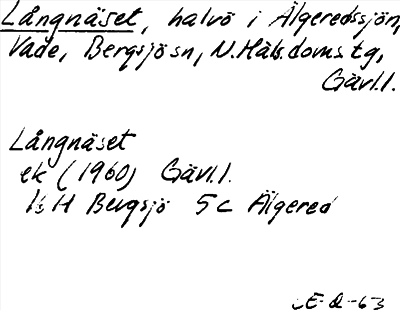 Långnäset, halvö i Älgeredssjön,
Vade, Bergsjö sn, N. Häls. doms. tg,
Gävl.l.
Långnäset
ek (1960) Gävl.l.
H Bergsjö 5c Älgered